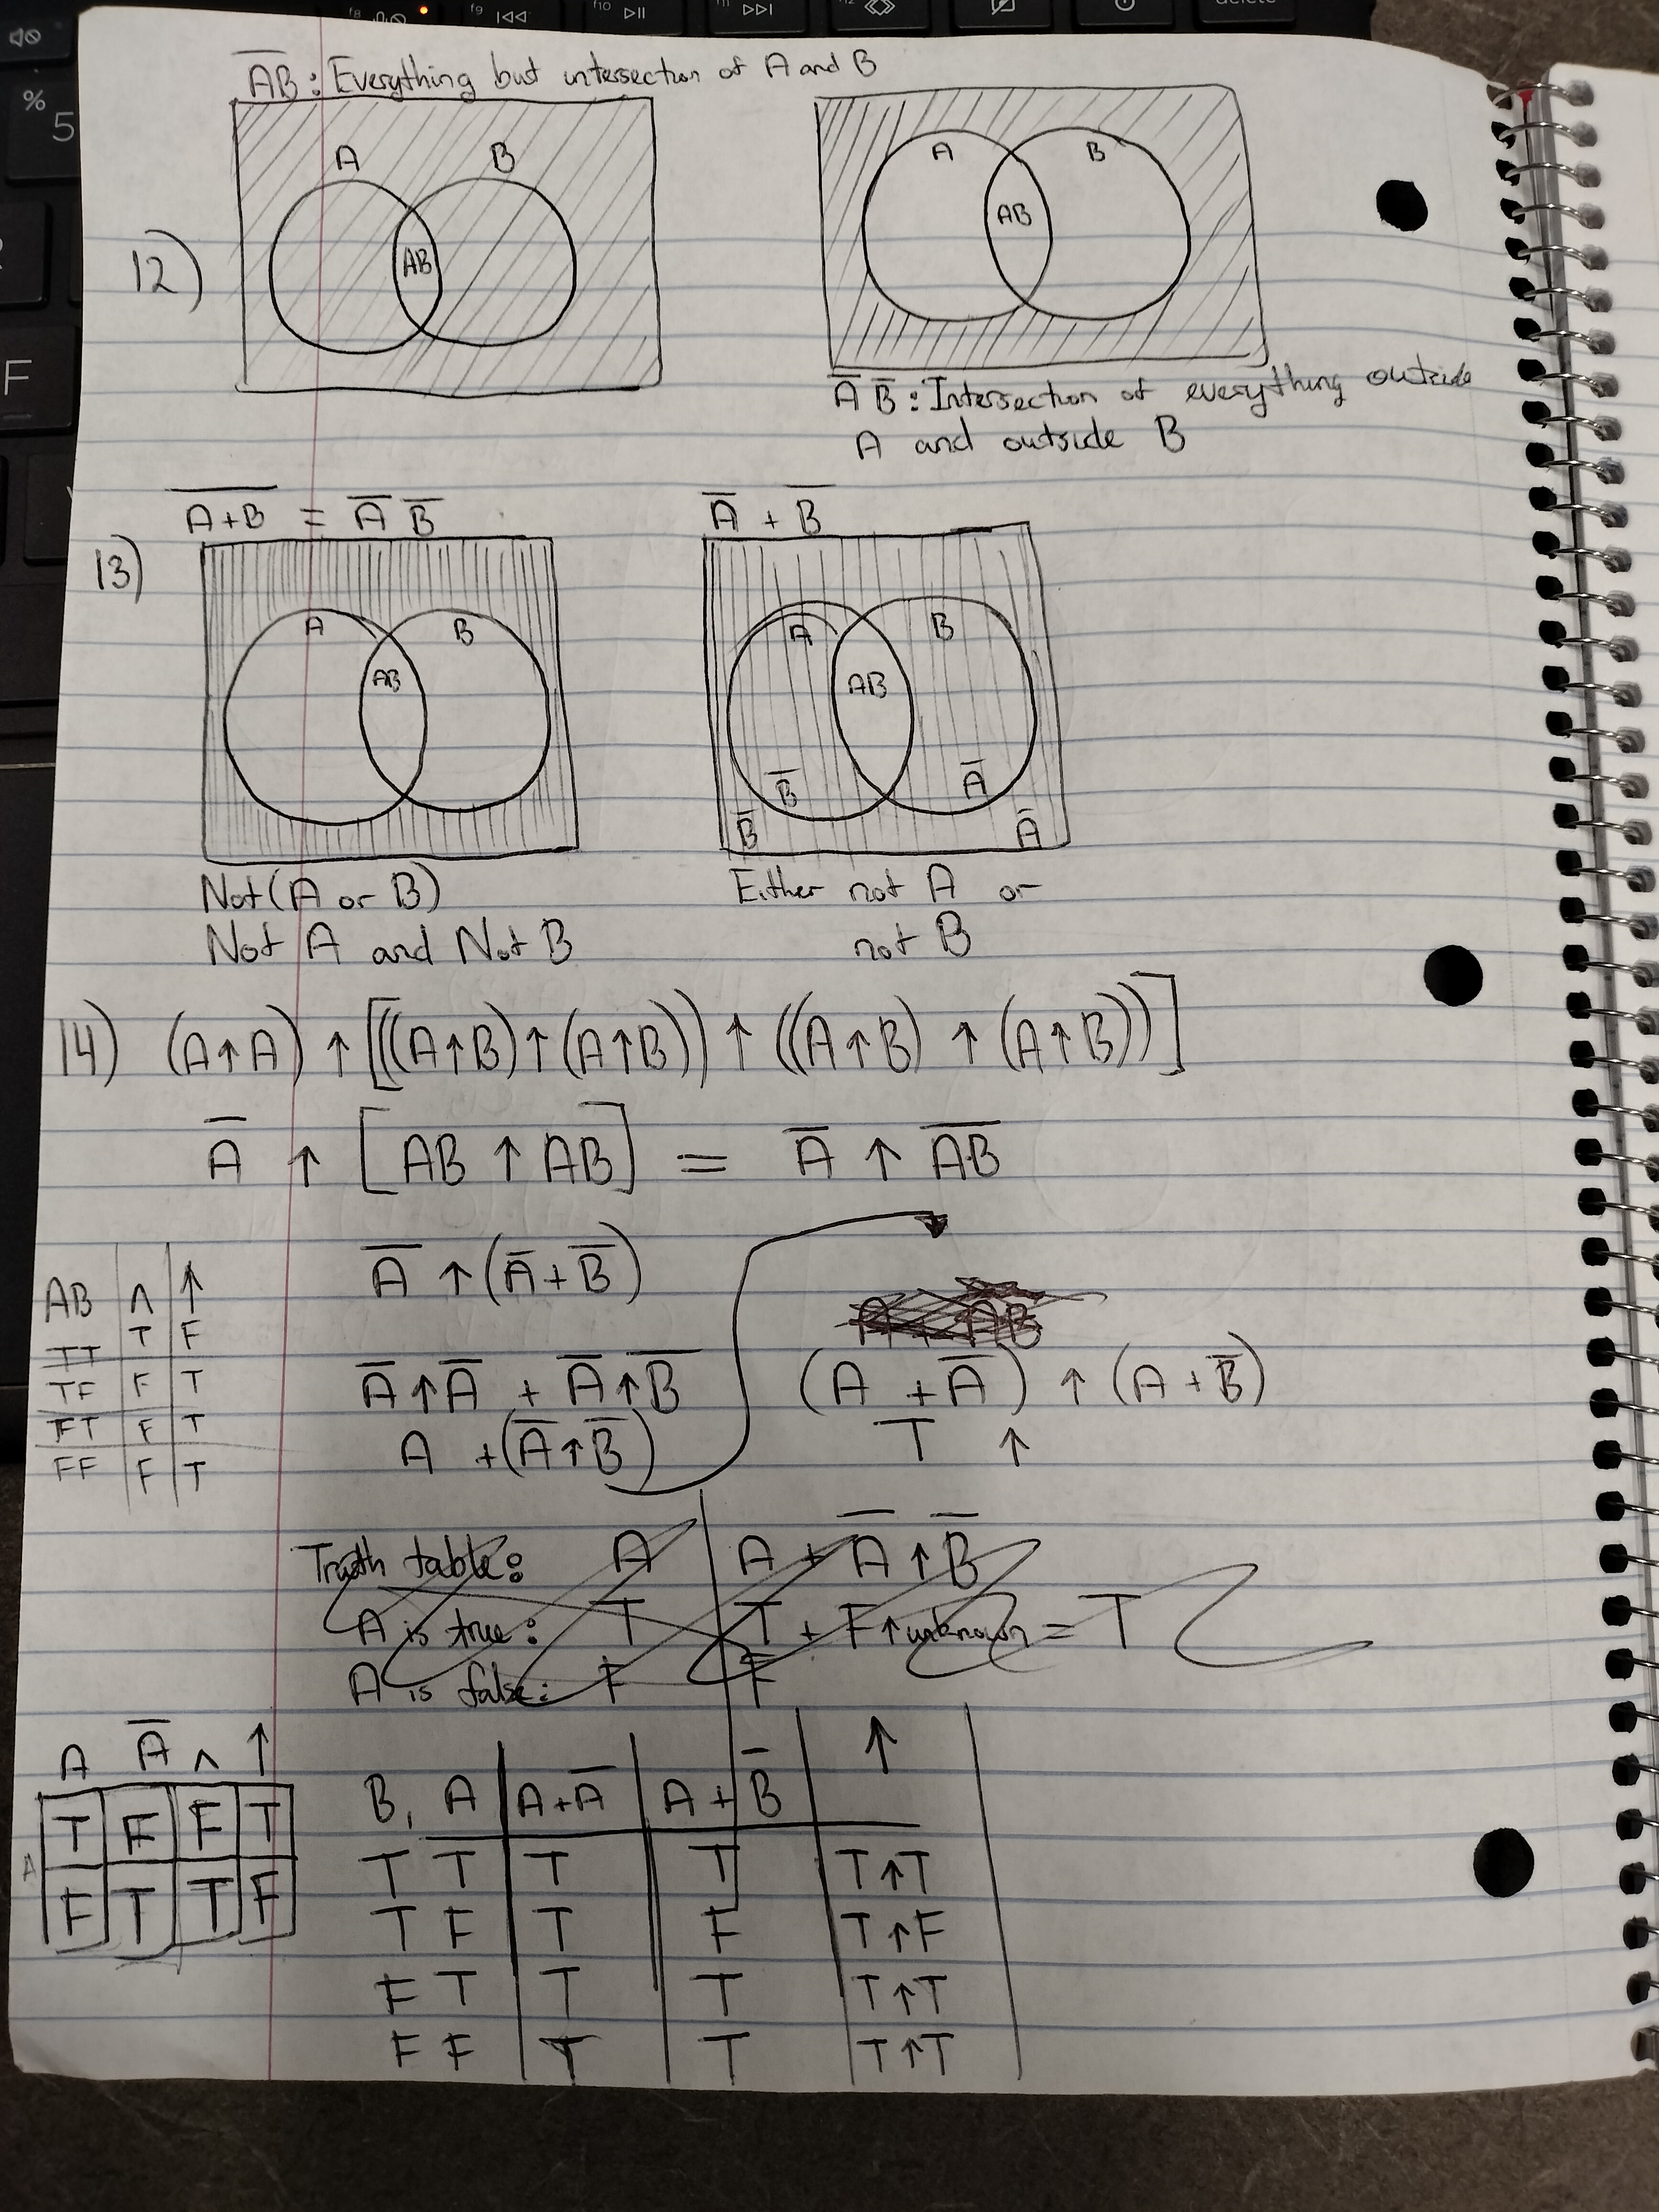 f8 f9 f10 f11 f12 delete
% 5
F
A̅B̅: Everything but intersection of A and B
A B A B
12) AB AB
A̅ B̅: Intersection of everything outside
A and outside B
A̅+̅B̅ = A̅ B̅ A̅ + B̅
13)
A B A B
AB AB
B̅ A̅
B̅ A̅
Not (A or B) Either not A or
Not A and Not B not B
14) (A↑A) ↑ [((A↑B)↑(A↑B)) ↑ ((A↑B) ↑ (A↑B))]
A̅ ↑ [AB ↑ AB] = A̅ ↑ A̅B̅
A̅ ↑ (A̅+B̅)
AB ∧ ↑
TT T F
TF F T
FT F T
FF F T
A̅↑A̅ + A̅↑B̅ (A + A̅) ↑ (A + B̅)
A + (A̅↑B̅) T ↑
Truth table: A A + A̅ ↑ B̅
A is true: T T + F↑unknown = T
A is false: F F
A A̅ ∧ ↑
T F F T
F T T F
B, A A+A̅ A+B̅ ↑
T T T T T↑T
T F T F T↑F
F T T T T↑T
F F T T T↑T